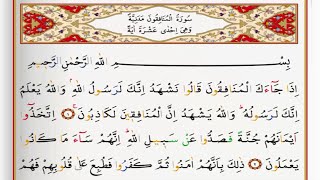 سُورَةُ الْمُنَافِقُونَ مَدَنِيَّةٌ
وَهِيَ اِحْدٰى عَشْرَةَ اٰيَةً
بِسْــــمِ اللّٰهِ الرَّحْمٰنِ الرَّحٖيمِ
اِذَا جَٓاءَكَ الْمُنَافِقُونَ قَالُوا نَشْهَدُ اِنَّكَ لَرَسُولُ اللّٰهِۢ وَاللّٰهُ يَعْلَمُ
اِنَّكَ لَرَسُولُهُۜ وَاللّٰهُ يَشْهَدُ اِنَّ الْمُنَافِقٖينَ لَكَاذِبُونَۚ ١ اِتَّخَذُٓوا
اَيْمَانَهُمْ جُنَّةً فَصَدُّوا عَنْ سَبٖيلِ اللّٰهِۜ اِنَّهُمْ سَٓاءَ مَا كَانُوا
يَعْمَلُونَ ٢ ذٰلِكَ بِاَنَّهُمْ اٰمَنُوا ثُمَّ كَفَرُوا فَطُبِعَ عَلٰى قُلُوبِهِمْ فَهُمْ